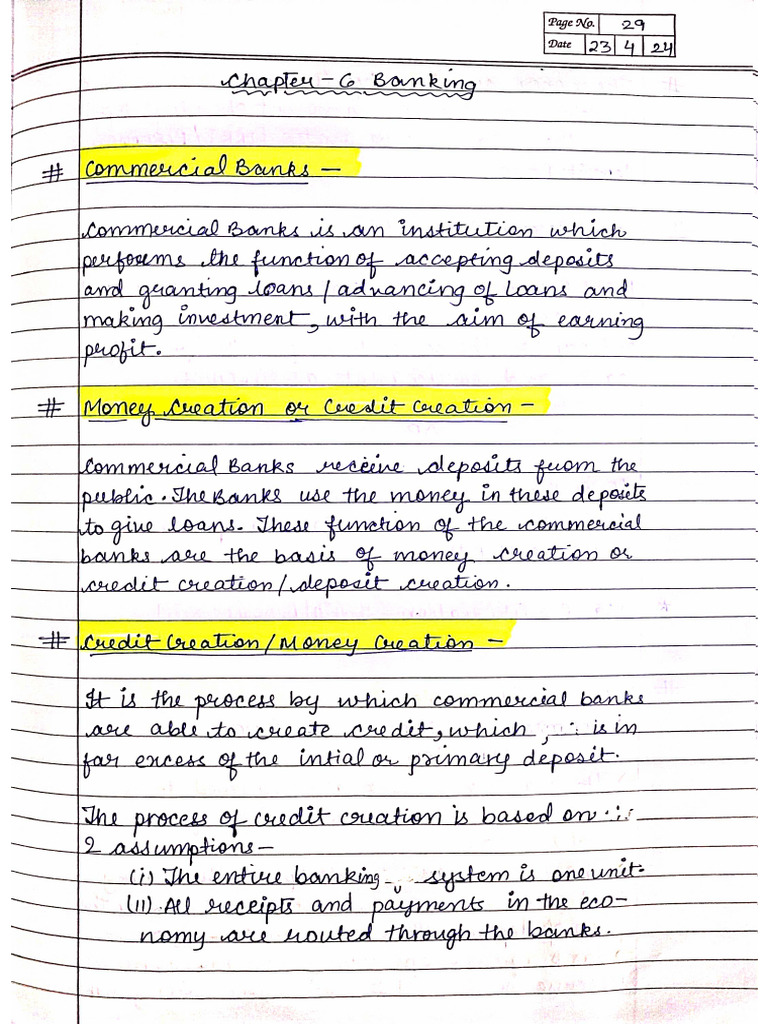 Page No. 29
Date 23 4 24
Chapter - 6 Banking
# Commercial Banks -
Commercial Banks is an institution which
performs the function of accepting deposits
and granting loans / advancing of loans and
making investment, with the aim of earning
profit.
# Money Creation or Credit Creation -
Commercial Banks receive deposits from the
public. The Banks use the money in these deposits
to give loans. These function of the commercial
banks are the basis of money creation or
credit creation / deposit creation.
# Credit Creation / Money Creation -
It is the process by which commercial banks
are able to create credit, which, is in
far excess of the intial or primary deposit.
The process of credit creation is based on
2 assumptions -
(i) The entire banking system is one unit.
(ii) All receipts and payments in the eco-
nomy are routed through the banks.